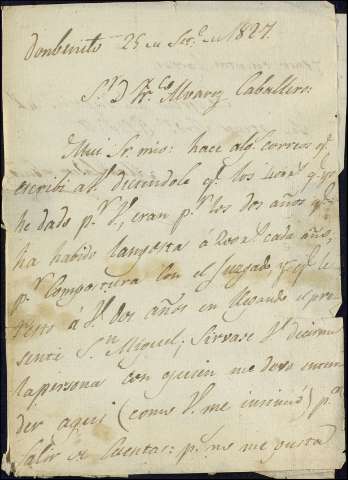 Donbenito 25 de Set.e de 1827.
S.r D. Fr.co Alvarez Caballero:
Mui Sr. mio: hace alg.s correos q.e
escribi a V. diciendole q.e los 400 r.s q.e
he dado p.r V., eran p.r los dos años q.e
ha habido langosta á 200 r.s cada año,
p.r compostura con el Juzgado, y q.e le
resto á V. dos años en llegando el pre
sente S.n Miguel; sirvase V. decirme
la persona con quien me devo enten
der aqui (como V. me insinuó) p.a
salir de Cuentas: p.s no me gusta